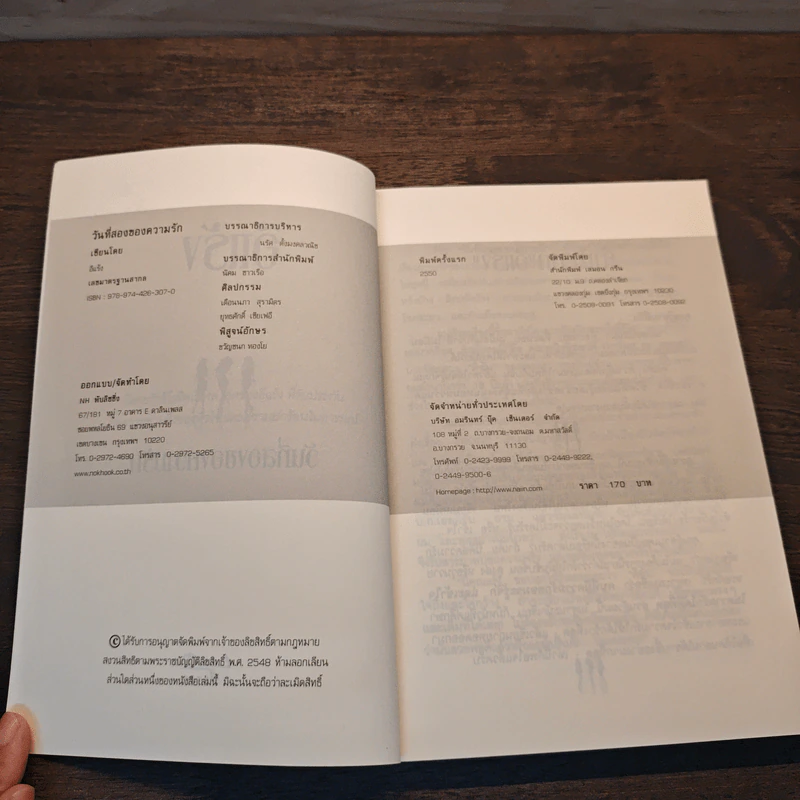 วันที่สองของความรัก
เขียนโดย
อีแร้ง
เลขมาตรฐานสากล
ISBN : 978-974-426-307-0
บรรณาธิการบริหาร
นรัศ ตั้งมงคลวณิช
บรรณาธิการสำนักพิมพ์
นัคม ชาวเรือ
ศิลปกรรม
เดือนนภา สุรามิตร
ยุทธศักดิ์ เชียเฟยี
พิสูจน์อักษร
ขวัญชนก ทองโย
ออกแบบ/จัดทำโดย
NH พับลิชชิ่ง
67/181 หมู่ 7 อาคาร E ดาลินเพลส
ซอยพหลโยธิน 69 แขวงอนุสาวรีย์
เขตบางเขน กรุงเทพฯ 10220
โทร. 0-2972-4690 โทรสาร 0-2972-5265
www.nokhook.co.th
©ได้รับการอนุญาตจัดพิมพ์จากเจ้าของลิขสิทธิ์ตามกฎหมาย
สงวนสิทธิตามพระราชบัญญัติลิขสิทธิ์ พ.ศ. 2548 ห้ามลอกเลียน
ส่วนใดส่วนหนึ่งของหนังสือเล่มนี้ มิฉะนั้นจะถือว่าละเมิดสิทธิ์
พิมพ์ครั้งแรก
2550
จัดพิมพ์โดย
สำนักพิมพ์ เลมอน กรีน
แขวงคลองกุ่ม เขตบึงกุ่ม กรุงเทพฯ 10230
โทร. 0-2509-0091 โทรสาร 0-2509-0092
จัดจำหน่ายทั่วประเทศโดย
บริษัท อมรินทร์ บุ๊ค เซ็นเตอร์ จำกัด
108 หมู่ที่ 2 ถ.บางกรวย-จงถนอม ต.มหาสวัสดิ์
อ.บางกรวย จ.นนทบุรี 11130
โทรศัพท์ 0-2423-9999 โทรสาร 0-2449-9222,
0-2449-9500-6
Homepage : http://www.naiin.com ราคา 170 บาท